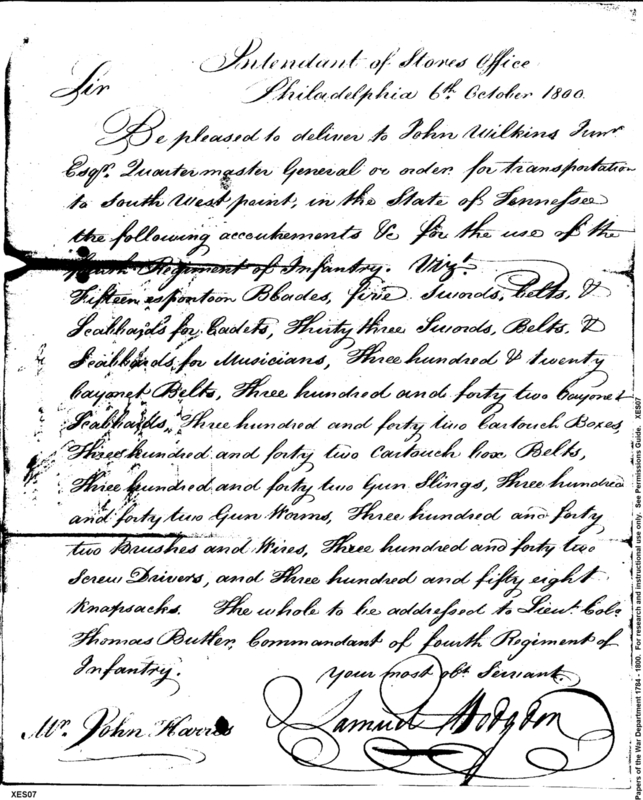 Intendant of Stores Office
Sir
Philadelphia 6th. October 1800.
Be pleased to deliver to John Wilkins Junr
Esqr. Quarter master General or order for transportation
to South West point, in the State of Tennessee
the following accoutrements &c for the use of the
fourth Regiment of Infantry. Vizt.
Fifteen espontoon Blades, five Swords, belts, &
Scabbards for Cadets, Thirty three Swords, Belts, &
Scabbards for Musicians, Three hundred & twenty
Bayonet Belts, Three hundred and forty two Bayonet
Scabbards, Three hundred and forty two Cartouch Boxes,
Three hundred and forty two Cartouch box Belts,
Three hundred and forty two Gun Slings, Three hundred
and forty two Gun Worms, Three hundred and forty
two Brushes and Wires, Three hundred and forty two
Screw Drivers, and Three hundred and fifty eight
Knapsacks. The whole to be addressed to Lieut. Colo.
Thomas Butler, Commandant of fourth Regiment of
Infantry.
Your most obt. Servant.
Samuel Hodgdon
Mr. John Harris
XES07
Papers of the War Department 1784 - 1800. For research and instructional use only. See Permissions Guide. XES07